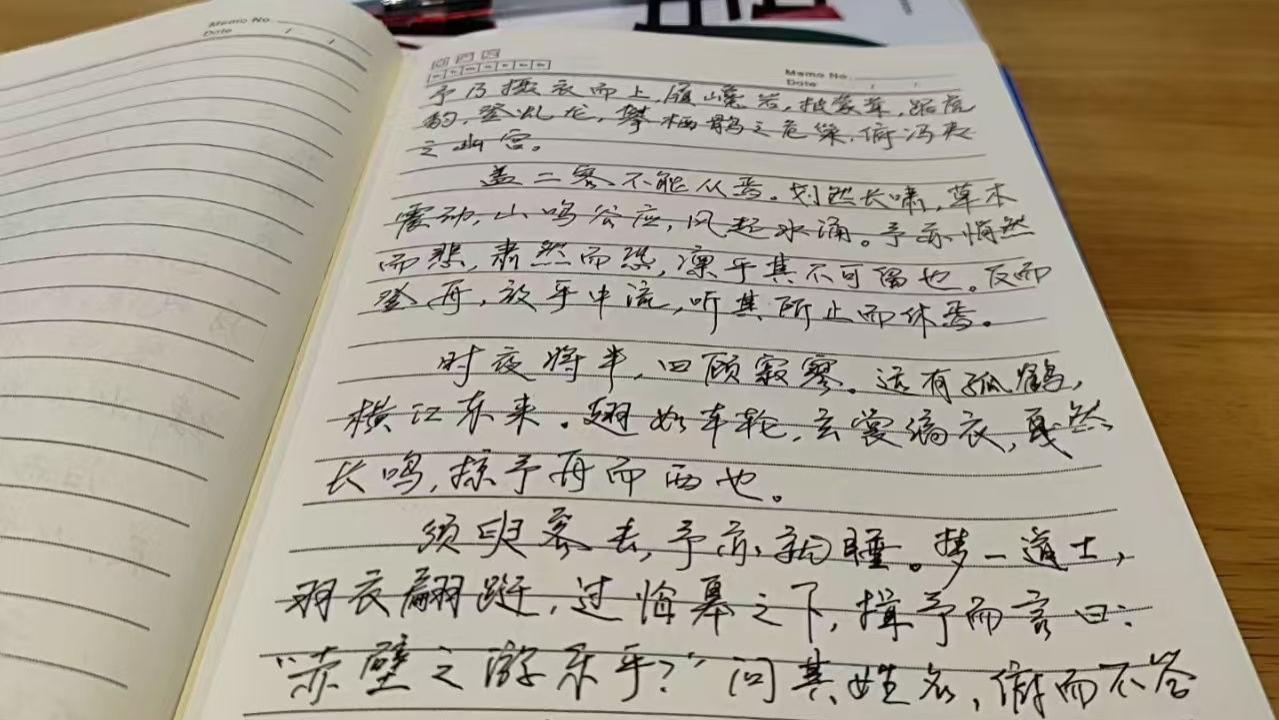 Memo No.
Date / /
Memo No.
Date / /
予乃摄衣而上,履巉岩,披蒙茸,踞虎
豹,登虬龙,攀栖鹘之危巢,俯冯夷
之幽宫。
盖二客不能从焉。划然长啸,草木
震动,山鸣谷应,风起水涌。予亦悄然
而悲,肃然而恐,凛乎其不可留也。反而
登舟,放乎中流,听其所止而休焉。
时夜将半,四顾寂寥。适有孤鹤,
横江东来。翅如车轮,玄裳缟衣,戛然
长鸣,掠予舟而西也。
须臾客去,予亦就睡。梦一道士,
羽衣翩跹,过临皋之下,揖予而言曰:
“赤壁之游乐乎?”问其姓名,俯而不答